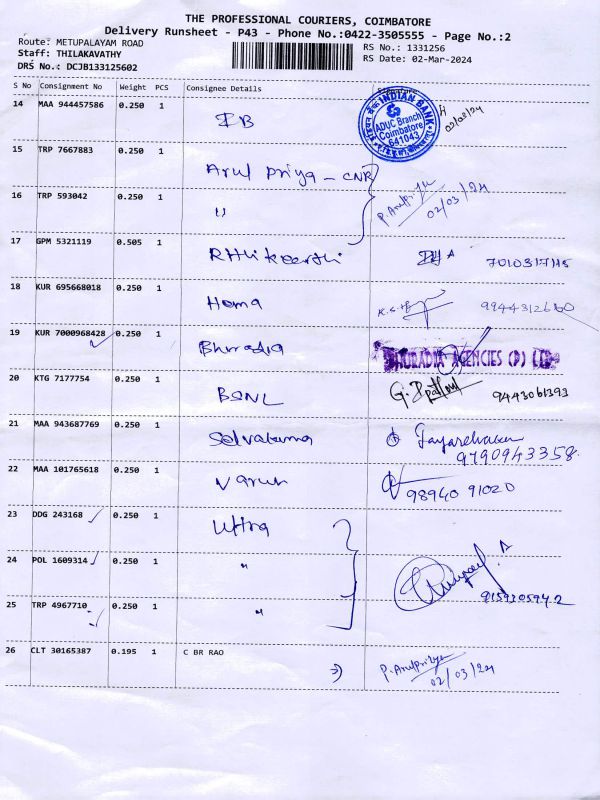 THE PROFESSIONAL COURIERS, COIMBATORE
Delivery Runsheet - P43 - Phone No.:0422-3505555 - Page No.:2
Route: METUPALAYAM ROAD RS No.: 1331256
Staff: THILAKAVATHY RS Date: 02-Mar-2024
DRS No.: DCJB133125602
S No Consignment No Weight PCS Consignee Details Signature
14 MAA 944457586 0.250 1 IB 02/03/24
INDIAN BANK
ADUC Branch
Coimbatore
641043
15 TRP 7667883 0.250 1 Arul Priya - CNR
16 TRP 593042 0.250 1 " P. Arulpriya
02/03/24
17 GPM 5321119 0.505 1 Rthikeerthi
18 KUR 695668018 0.250 1 Homa
19 KUR 7000968428 0.250 1 Bhuradia BHURADIA AGENCIES (P) LTD
20 KTG 7177754 0.250 1 BSNL 9443061393
21 MAA 943687769 0.250 1 Selvakuma
9790943358
22 MAA 101765618 0.250 1 Varun 98940 91020
23 DDG 243168 0.250 1 Uttra
24 POL 1609314 0.250 1 "
25 TRP 4967710 0.250 1 "
26 CLT 30165387 0.195 1 C BR RAO P. Arulpriya
02/03/24